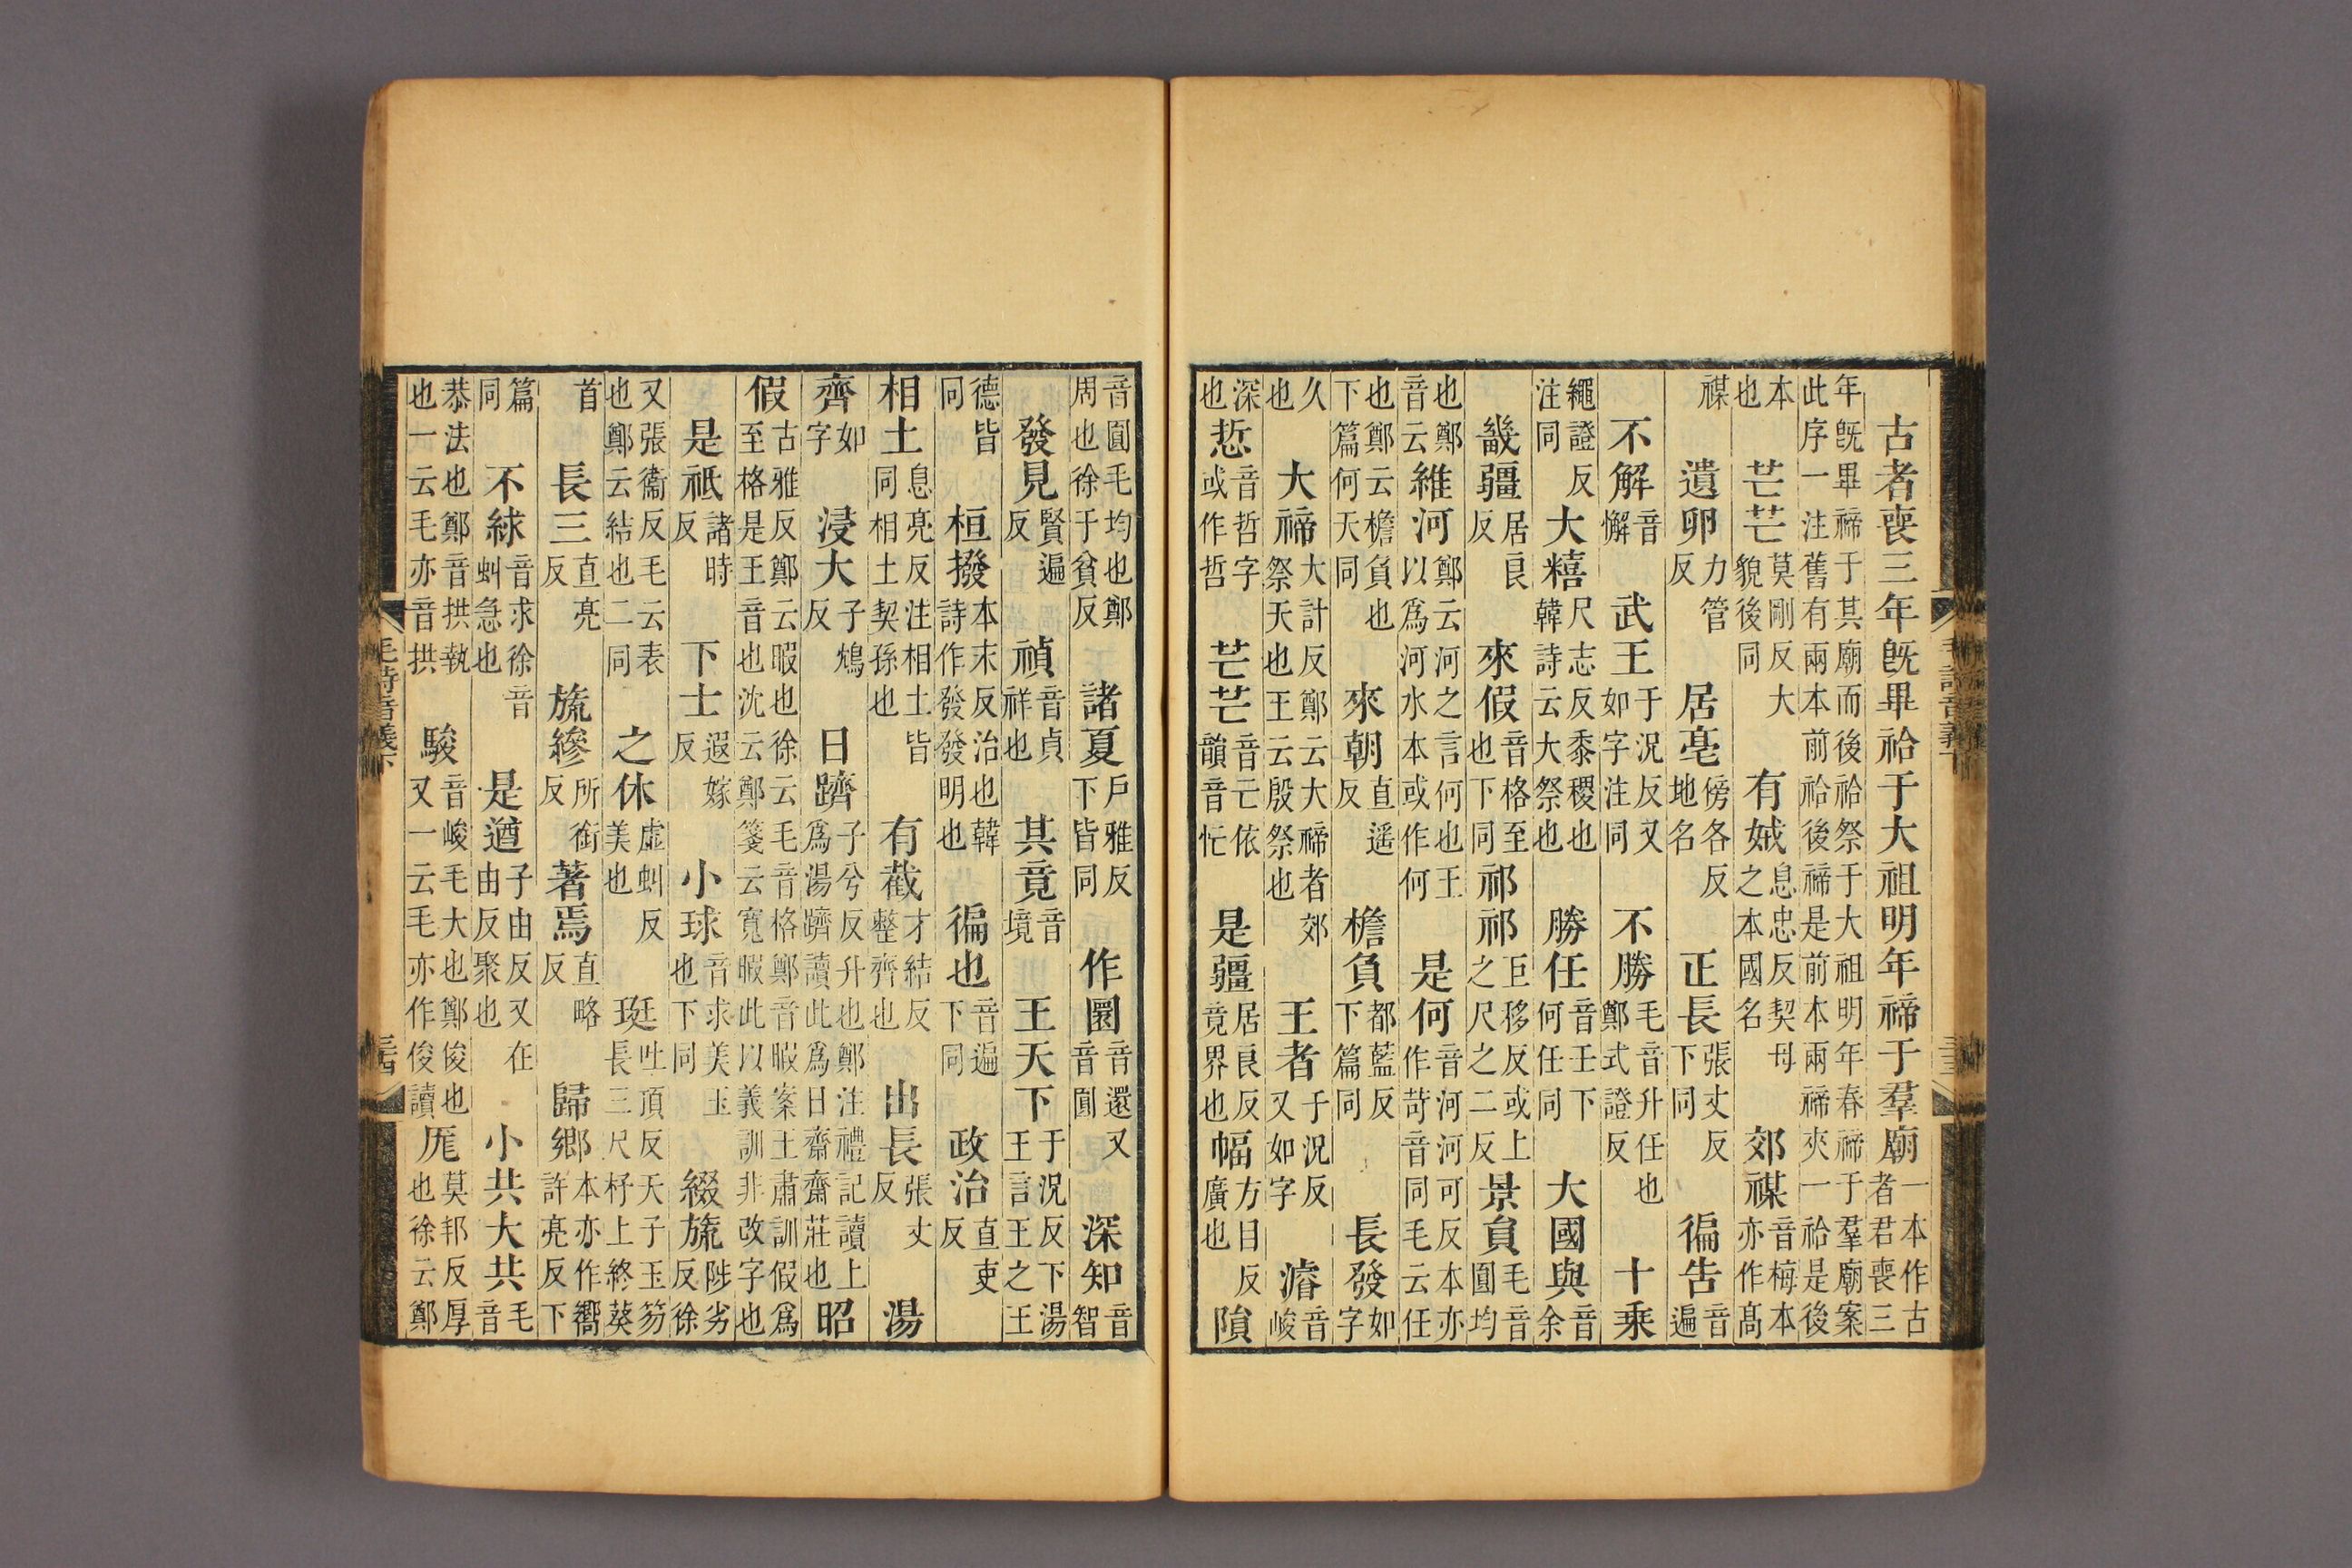 毛詩音義下 三三
古者喪三年旣畢祫于大祖明年禘于羣廟一本作古者君喪三
年旣畢禘于其廟而後祫祭于大祖明年春禘于羣廟案此序一注舊有兩本前祫後禘是前本兩禘夾一祫是後
本也芒芒莫剛反大貌後同有娀息忠反契母之本國名郊禖音梅本亦作高
禖遺卵力管反居亳傍各反地名正長張丈反下同徧告音遍
不解音懈武王于況反又如字注同不勝毛音升任也鄭式證反十乘
繩證反注同大糦尺志反黍稷也韓詩云大祭也勝任音壬下何任同大國與音余
畿疆居良反來假音格至也下同祁祁巨移反或上之尺之二反景員毛音圓均
也鄭音云維河鄭云河之言何也王以爲河水本或作何是何音河河可反本亦作苛音同毛云任
也鄭云檐負也下篇何天同來朝直遥反檐負都藍反下篇同長發如字
久也大禘大計反鄭云大禘者郊祭天也王云殷祭也王者于況反又如字濬音峻
深也悊音哲字或作哲芒芒音亡依韻音忙是疆居良反竟界也幅方目反廣也隕
音圓毛均也鄭周也徐于貧反諸夏戶雅反下皆同作圜音還又音圓深知音智
發見賢遍反禎音貞祥也其竟音境王天下于況反下湯王言王之王
德皆同桓撥本末反治也韓詩作發發明也徧也音遍下同政治直吏反
相土息亮反注相土皆同相土契孫也有截才結反整齊也出長張丈反湯
齊如字浸大子鴆反日躋子兮反升也鄭注禮記讀上爲湯躋讀此爲日齋齋莊也昭
假古雅反鄭云暇也徐云毛音格鄭音暇案王肅訓假爲至格是王音也沈云鄭箋云寬暇此以義訓非改字也
是祇諸時反下士遐嫁反小球音求美玉也下同綴旒陟劣反徐
又張衞反毛云表也鄭云結也二同之休虛虯反美也珽吐頂反天子玉笏長三尺杼上終葵
首長三直亮反旒縿所銜反著焉直略反歸鄉本亦作嚮許亮反下
篇同不絿音求徐音虯急也是遒子由反又在由反聚也小共大共毛音
恭法也鄭音拱執也一云毛亦音拱駿音峻毛大也鄭俊也又一云毛亦作俊讀厖莫邦反厚也徐云鄭
毛詩音義下 三四